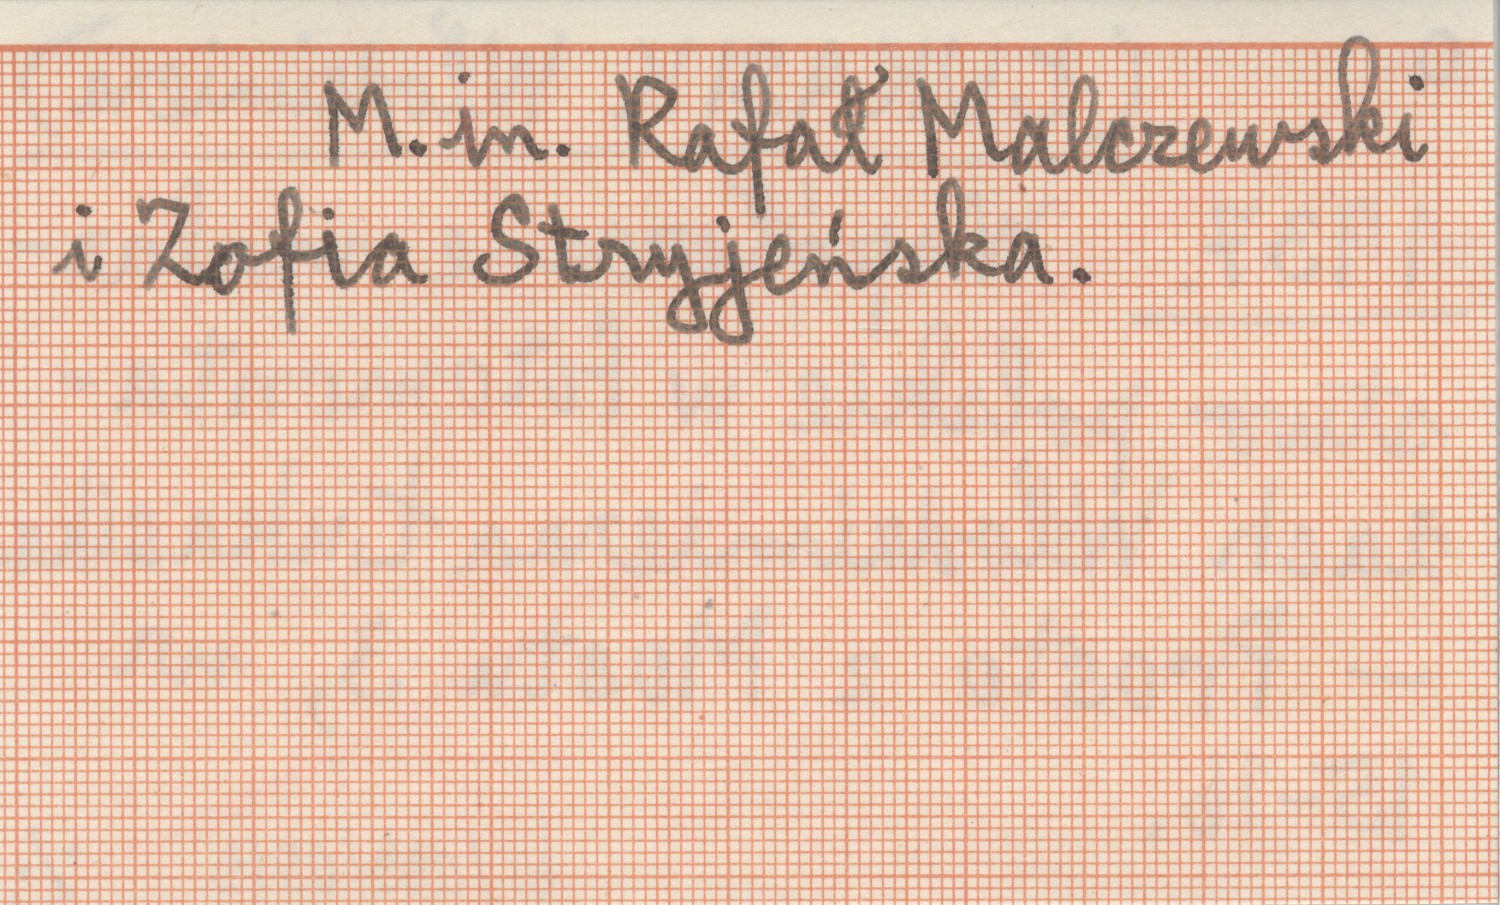 M.in. Rafał Malczewski
i Zofia Stryjeńska.